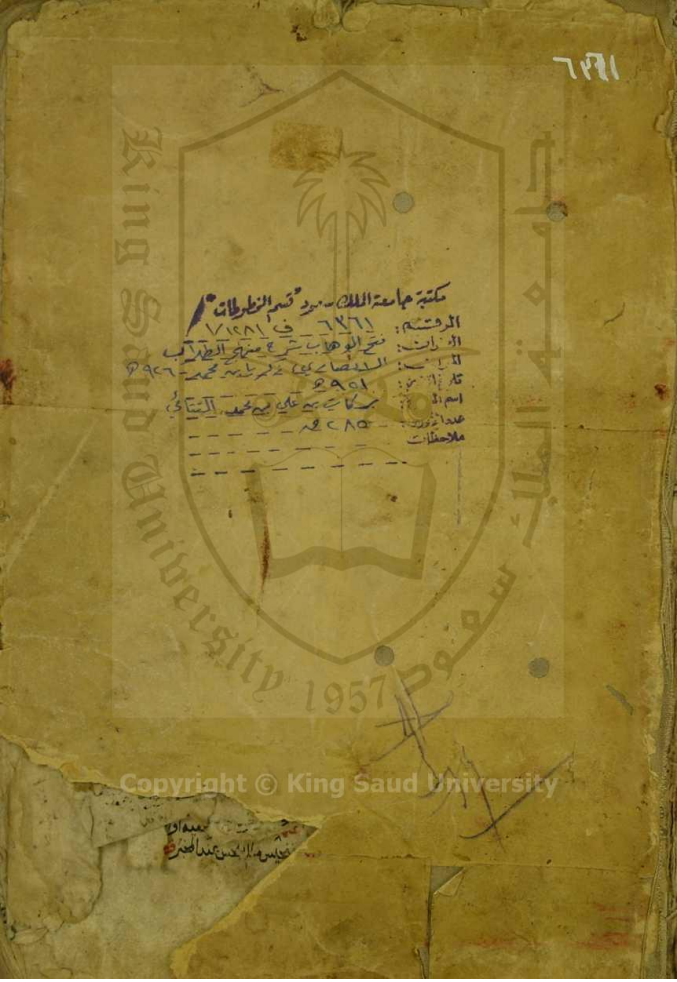 ٦٣٦١
مكتبة جامعة الملك سعود "قسم المخطوطات"
الرقم: ٦٣٦١ ف ١/١٢٨١
العنوان: فتح الوهاب بشرح منهج الطلاب
المؤلف: الانصاري، زكريا بن محمد - ٩٢٦هـ
تاريخ النسخ: ٩٥١هـ
اسم الناسخ: بركات بن علي بن محمد
عدد الاوراق: ٢٨٥
ملاحظات
King Saud University
1957
جامعة الملك سعود
Copyright © King Saud University